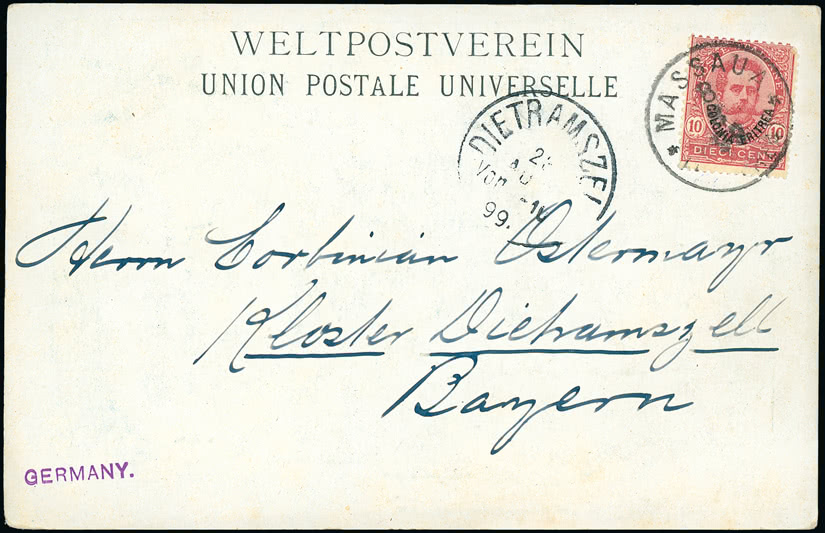 WELTPOSTVEREIN
UNION POSTALE UNIVERSELLE
MASSAUA
COLONIA ERITREA
10 10
DIECI CENT
DIETRAMSZEL
AU
Vor
99.
Herrn Corbinian Ostermayr
Kloster Dietramszell
Bayern
GERMANY.